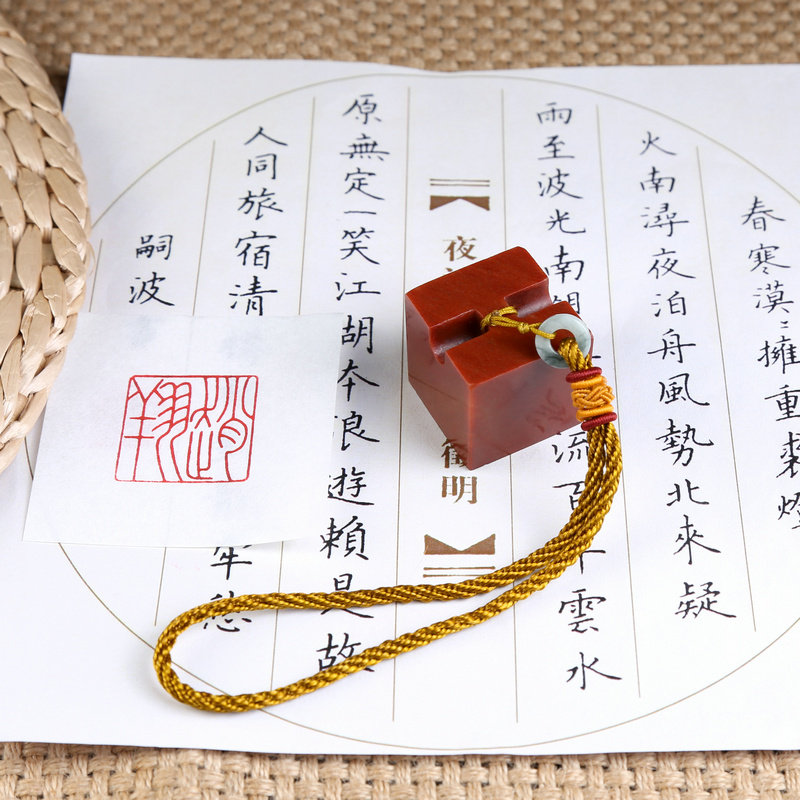 春寒漠〻擁重裘燈
火南潯夜泊舟風勢北來疑
雨至波光南
流百
雲水
夜
明
原無定一笑江湖本浪遊賴是故
人同旅宿清
愁
嗣波
趙翔